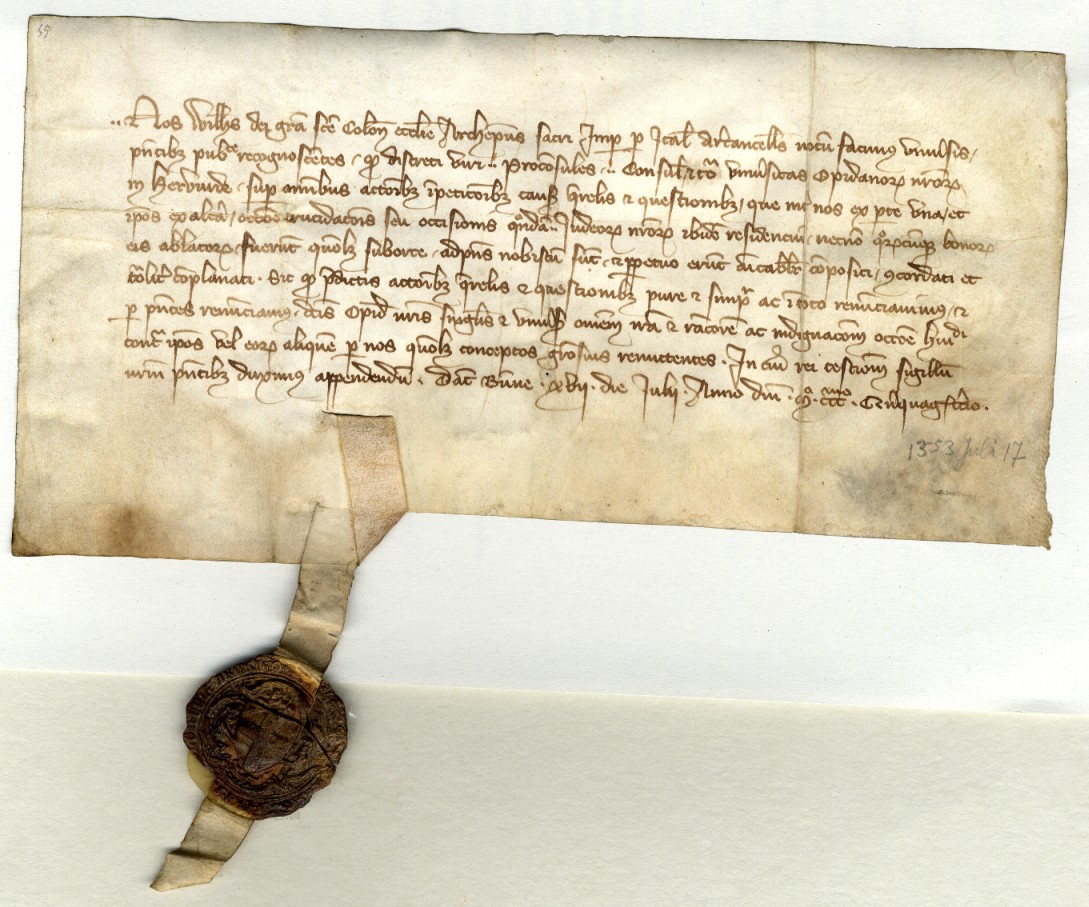 59
.. Nos Wilhs dei gra sce Colon ecclie Archiepus sacri Imp p Ital Archicancell notu facimus vniusis,
pntibz publice recognoscetes, qd discreti viri .. Proconsules, .. Consul, et tota vniusitas Opidanor nror
in Hervurde, sup omnibus actionibz ipeticionibz causis qrelis et questionibz, que int nos ex pte vna, et
ipos ex altera, occoe trucidacois seu occisionis qrda .. Judeor nror ibide residenciu, necno qrcuqz bonor
eis ablator, fuerut quolz suborte, ad pns nobiscu sut et ppetuo erut amicabilr compositi, concordati et
totalit complanati. Sic qd pdictis actionibz qrelis et questionibz pure et simplr ac in toto renunciauimus, et
p pntes renunciamus, dcis Opid nris singlis et vniusis omem iram et rancore ac indignacoem occoe huidi
cont ipos vel eor aliquem p nos quolz conceptos graciosius remittentes. In cui rei testiom sigillu
nrm pntibz duximus appendendu. Dat Bunne xvij. die Julij. Anno dni. Mo. cccmo. Quinquag tcio.
1353 Juli 17